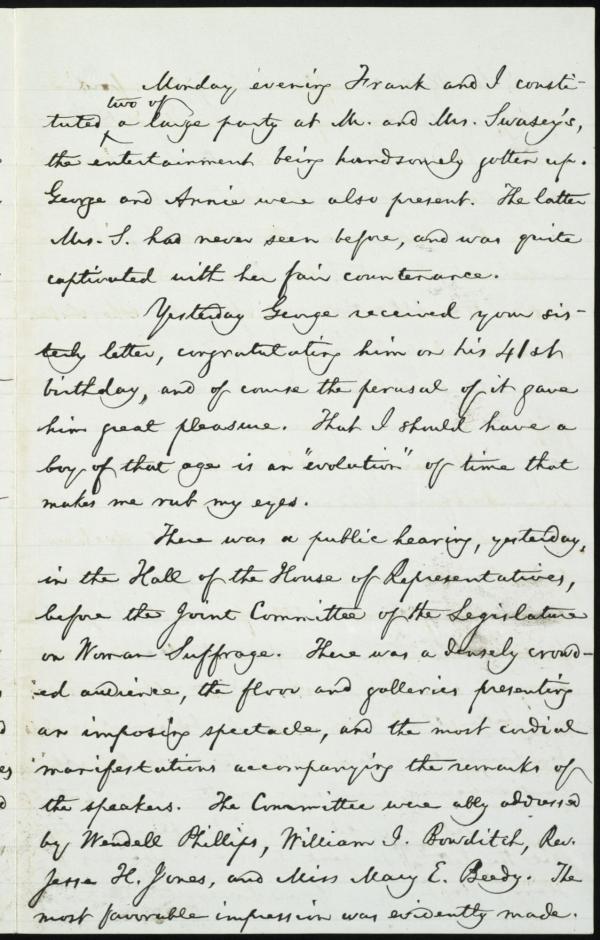 Monday evening Frank and I consti-
two of
tuted a large party at Mr. and Mrs. Swasey's,
the entertainment being handsomely gotten up.
George and Annie were also present. The latter
Mrs. S. had never seen before, and was quite
captivated with her fair countenance.
Yesterday George received your sis-
terly letter, congratulating him on his 41st
birthday, and of course the perusal of it gave
him great pleasure. That I should have a
boy of that age is an "evolution" of time that
makes me rub my eyes.
There was a public hearing, yesterday,
in the Hall of the House of Representatives,
before the Joint Committee of the Legislature
on Woman Suffrage. There was a densely crowd-
ed audience, the floor and galleries presenting
an imposing spectacle, and the most cordial
manifestations accompanying the remarks of
the speakers. The Committee were ably addressed
by Wendell Phillips, William I. Bowditch, Rev.
Jesse H. Jones, and Miss Mary E. Beedy. The
most favorable impression was evidently made.